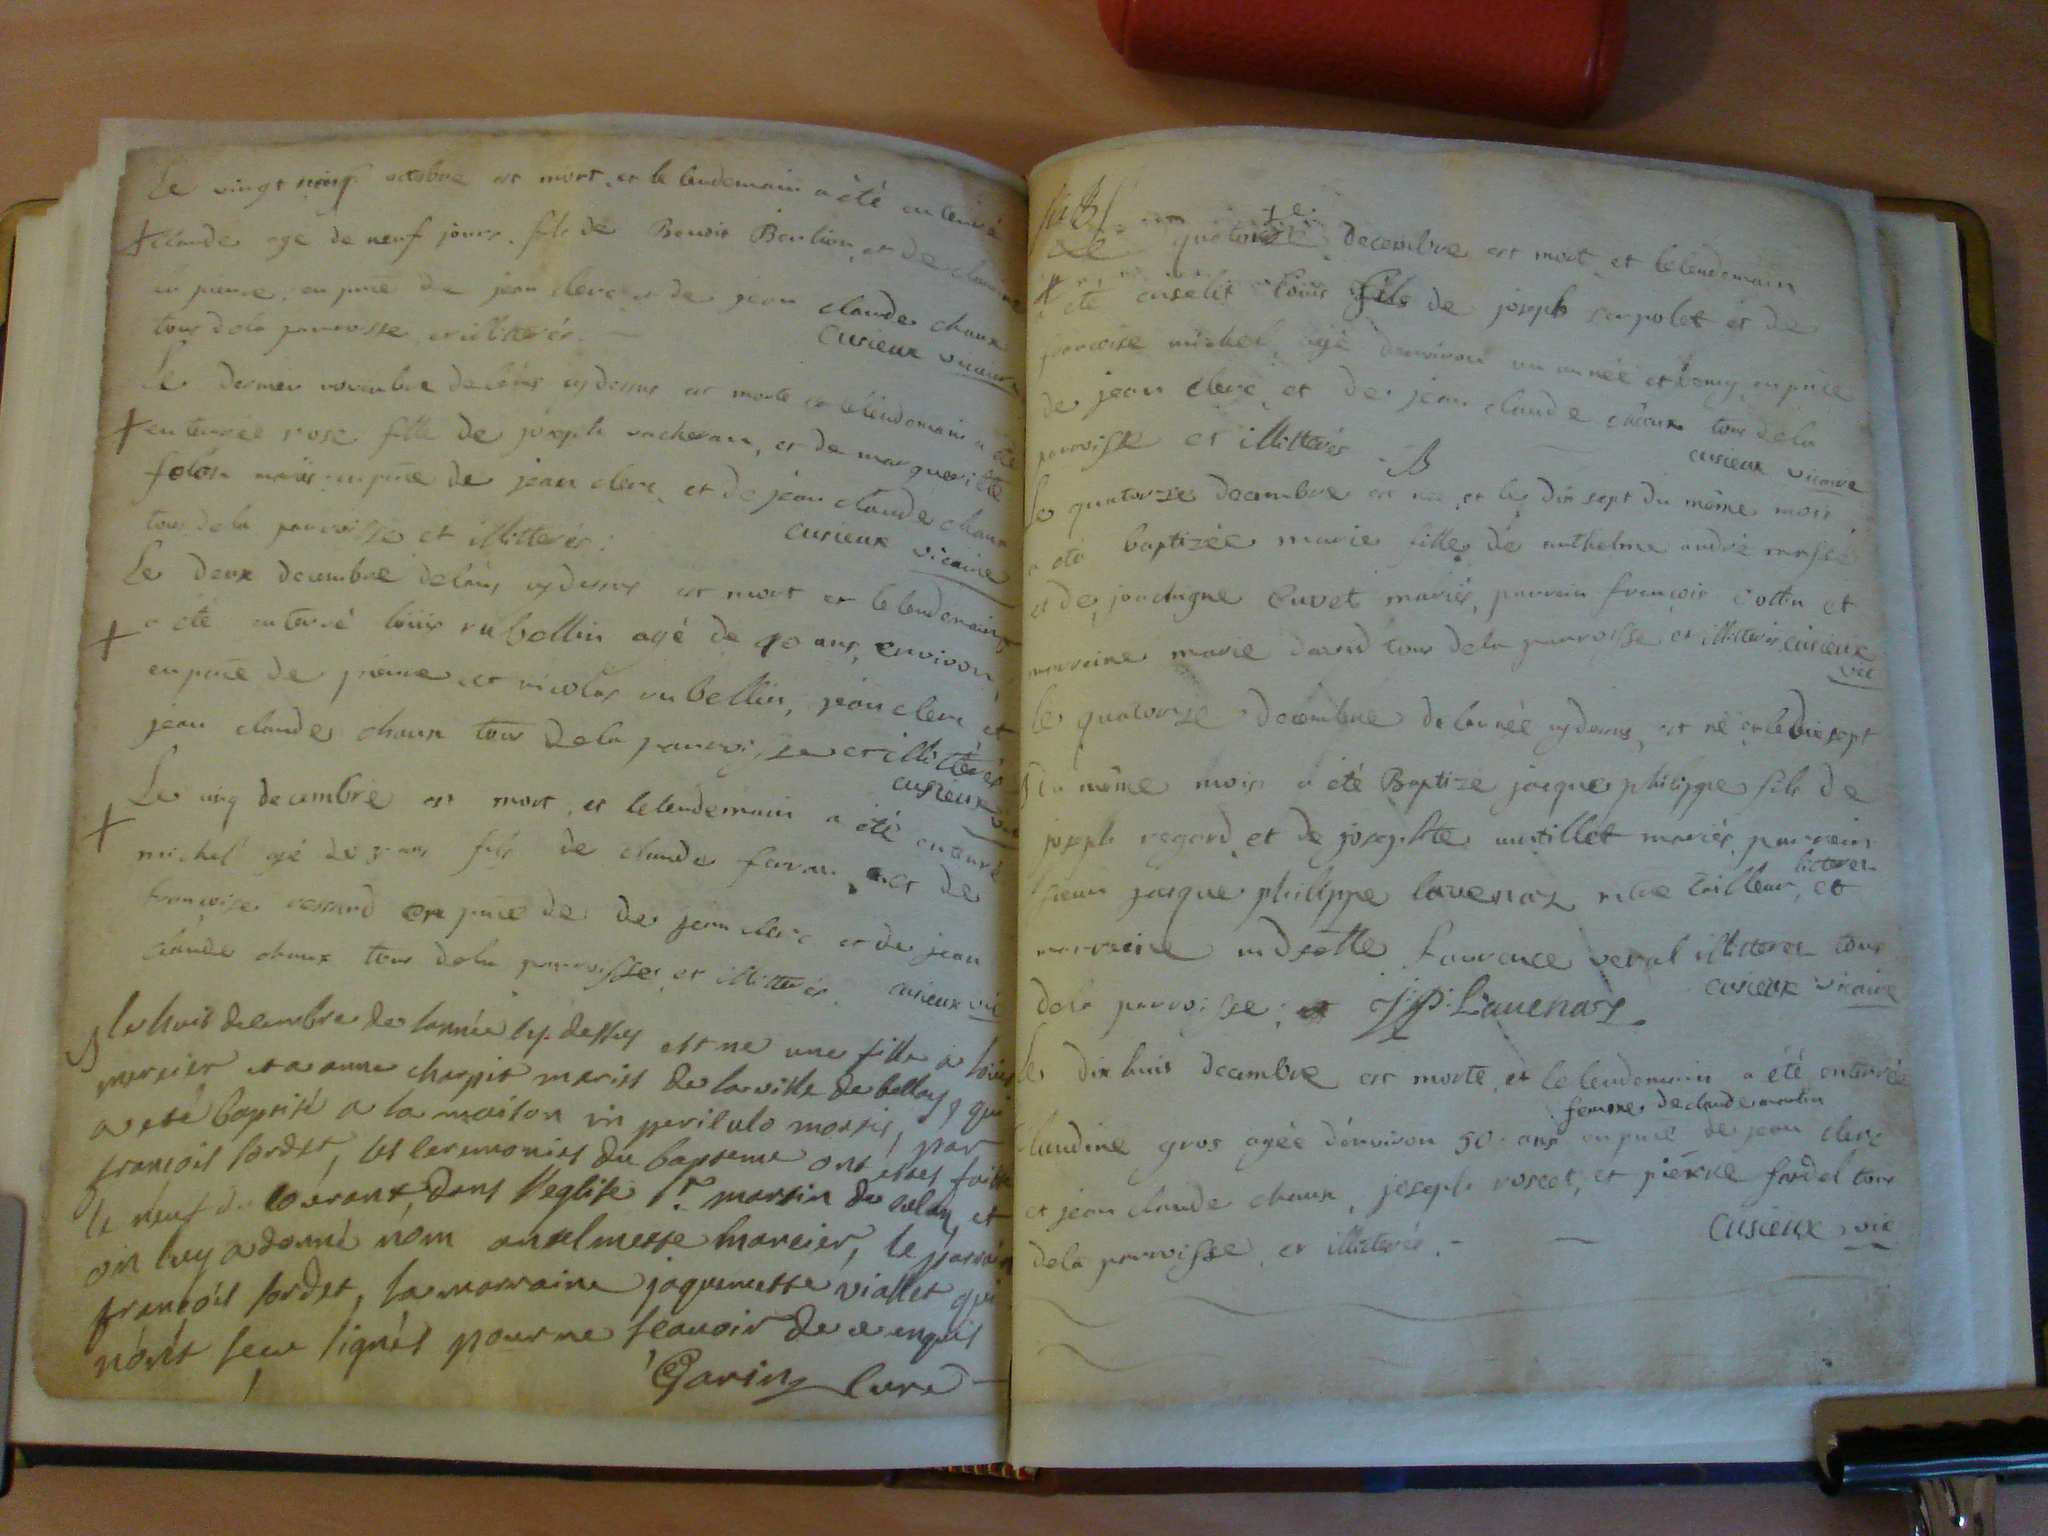 Le vingt neuf octobre est mort, et le lendemain a été enterré
claude age de neuf jours, fils de Benoit Berlion, et de claudine
en punce, en pnce de jean clerc et de jean claude chaux
tous dela parroisse et illitterés.
cusieux vicaire
Le dernier novembre de l'ans cydessus est morte et le lendemain a été
enterrée rose fille de joseph vacheran, et de marguerite
mariés en pnce de jean clerc, et de jean claude chaux
tous dela parroisse et illitterés.
cusieux vicaire
Le deux decembre de l'ans cydessus est mort et le lendemain
a été enterré loüis rubellin agé de 40 ans, environ,
en pnce de pierre et nicolas rubellin, jean clerc et
jean claude chaux tous dela parroisse et illitterés
cusieux
Le cinq decembre est mort, et le lendemain a été enterré
michel agé de 3 ans fils de claude favre, et de
françoise en pnce de de jean clerc et de jean
claude chaux tous dela parroisse et illitterés. cusieux vic
le huit decembre de lannée cy dessus est né une fille a loüis
mercier et a anne charpit mariés de la ville de belley, qui
a esté baptisé a la maison in periculo mortis, par
francois fordet, les ceremonies du bapteme ont estés faittes
le neuf du courant, dans l'eglise St martin de et
on luy a donné nom anselmette mercier, le parrain
françois fordet, la marraine jaquemette viallet qui
n'ont sceu signés pour ne scauoir de ce enquis
Garin curé
Le quatorze decembre est mort, et le lendemain
a été enselit loüis fils de joseph serpolet et de
francoise michel, agé d'environ un année et demy, en pnce
de jean clerc, et de jean claude chaux tous dela
parroisse et illitterés
cusieux vicaire
Le quatorze decembre est née, et le dix sept du même mois
a été baptizée marie fille de anthelme andré
et de jouachigne Cuvet mariés, parrain françois cottin et
marreine marie david tous dela parroisse et illitterés cusieux
vic
Le quatorze decembre de lannée cydessus, est né et le dix sept
du même mois a été Baptizé jacque philippe fils de
joseph regard, et de josephte mariés, parrain
litteré
sieur jacque philippe lavenaz mtre tailleur, et
marreine mdselle Laurence veral illitterée tous
dela parroisse. J: P: Lavenaz cusieux vicaire
Le dix huit decembre est morte, et le lendemain a été enterrée
femme de claude martin
claudine gros agée d'environ 50 ans en pnce de jean clerc
et jean claude chaux, joseph roset, et pierre fardel tous
dela parroisse, et illitterés.
cusieux vic